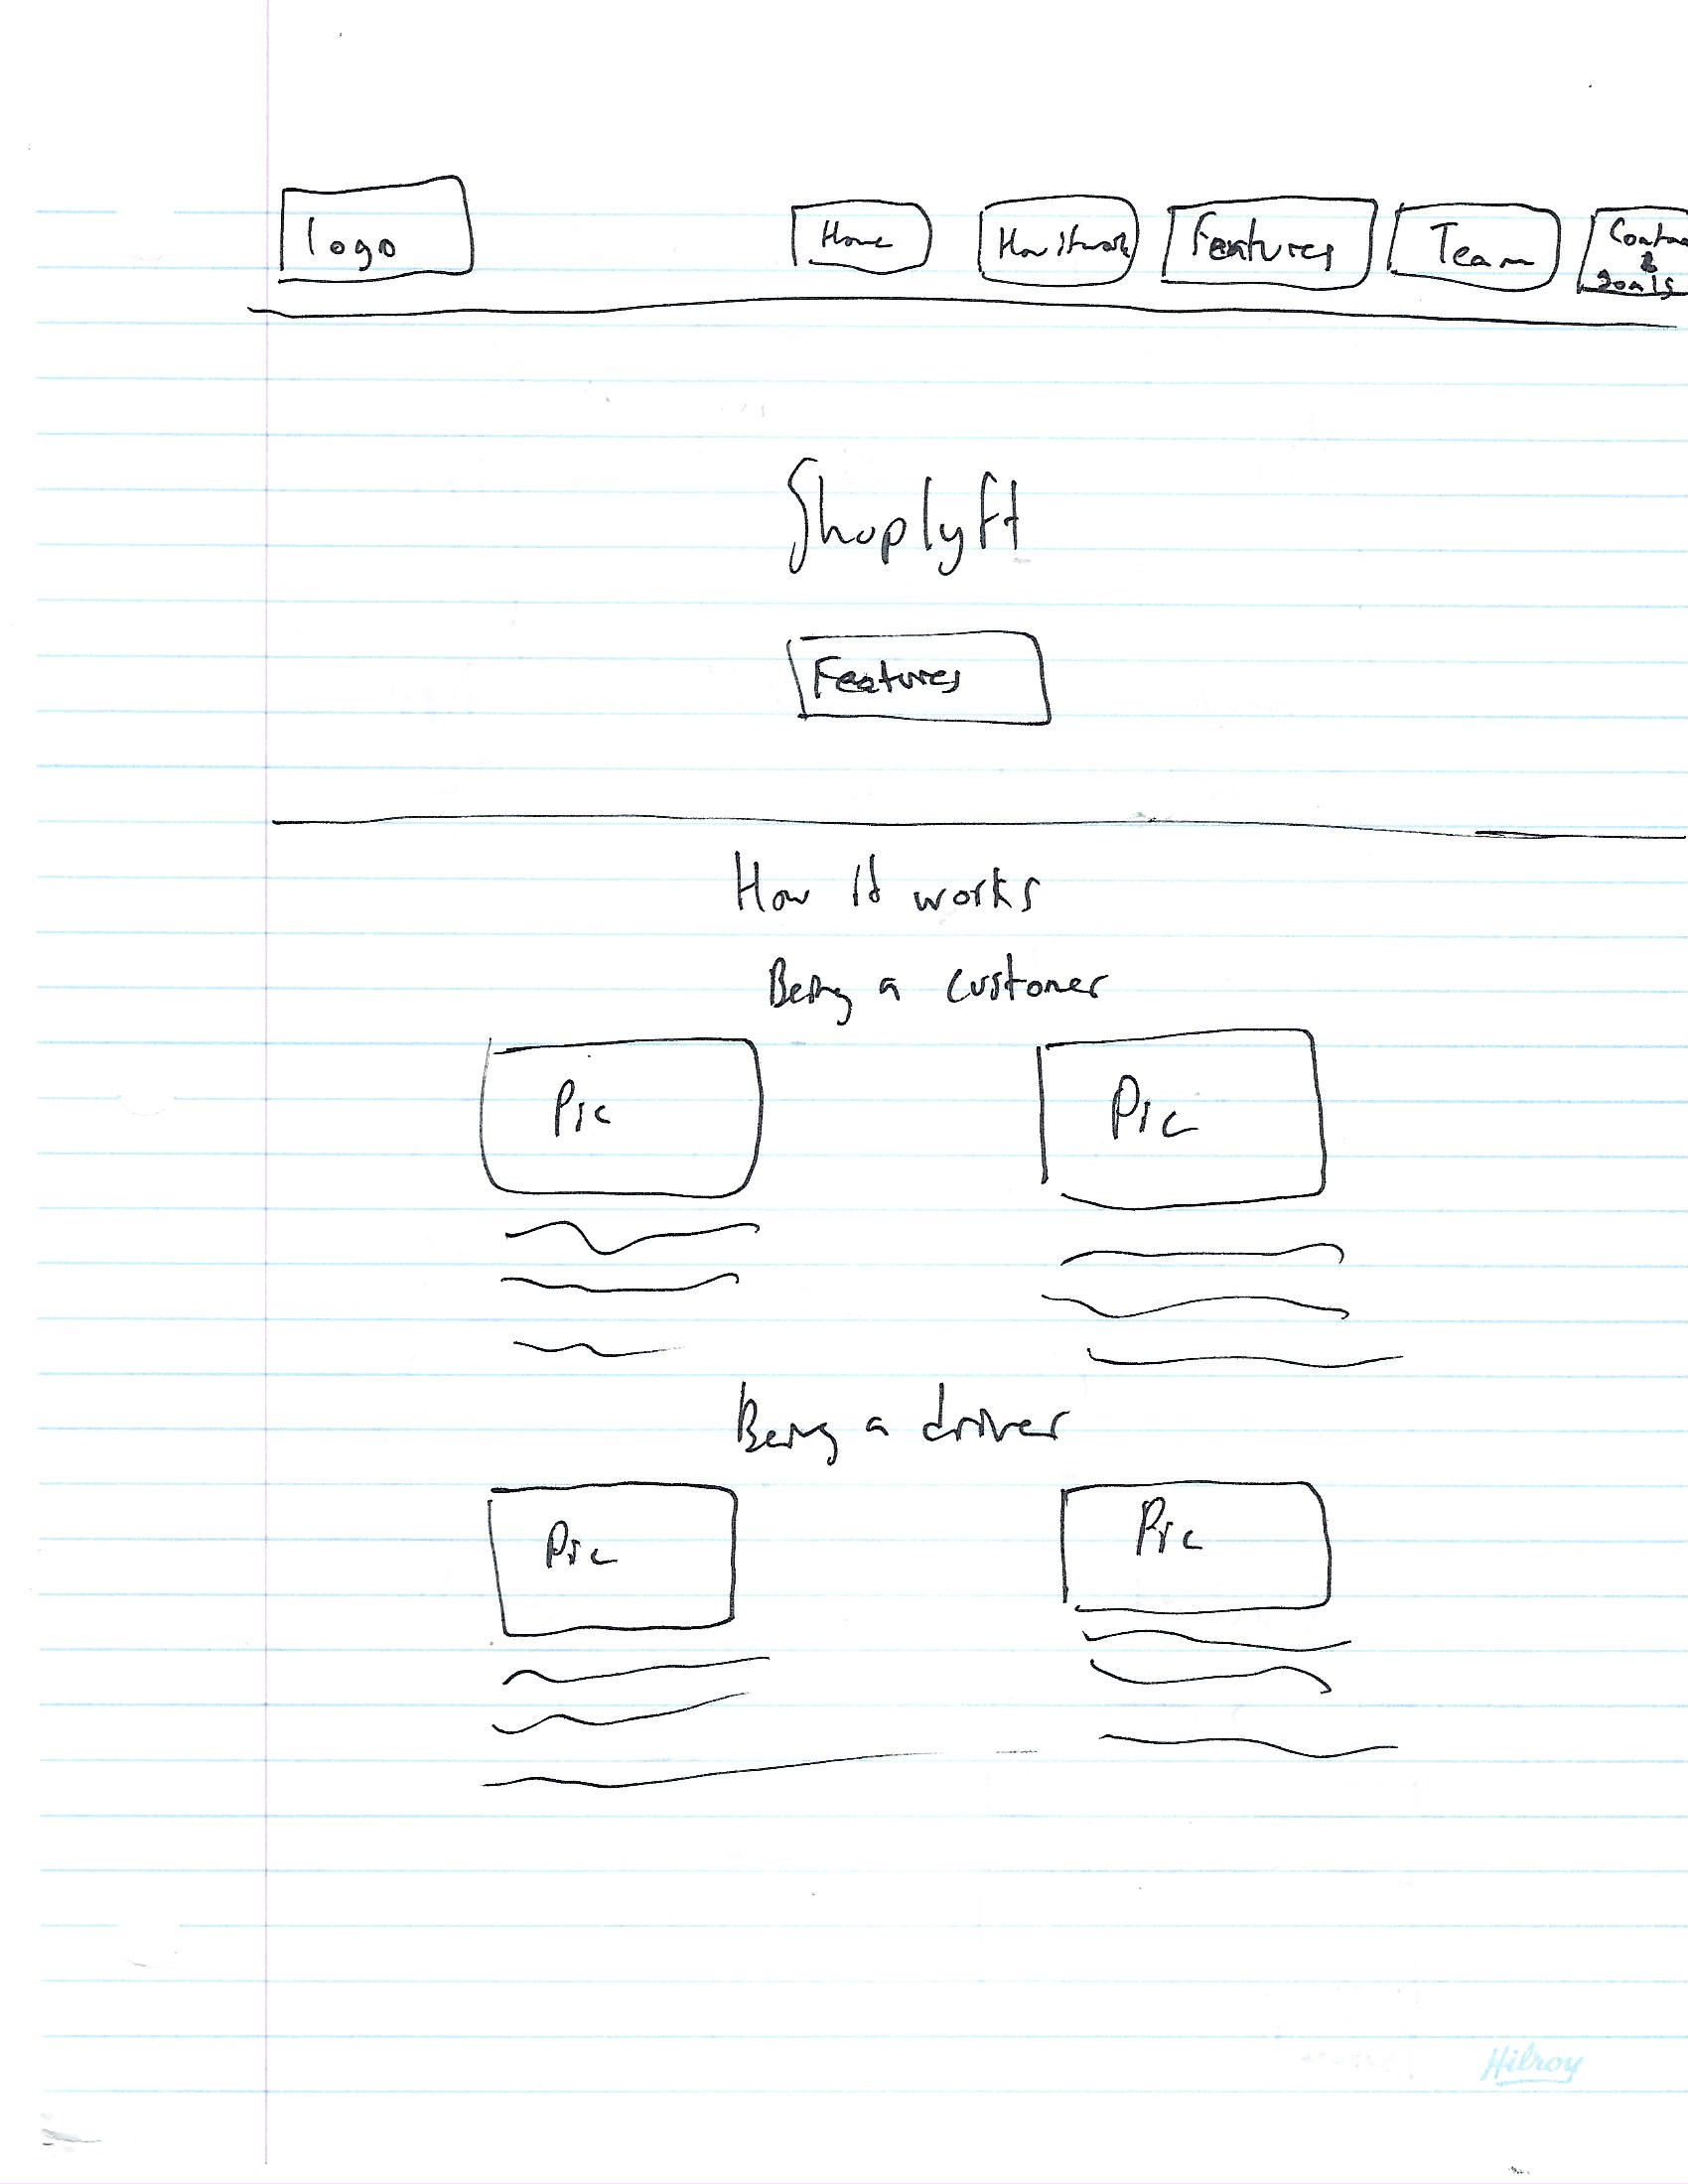 logo
Home
How it works
Features
Team
&
goals
Shoplyft
Features
How it works
Being a customer
Pic
Pic
Being a driver
Pic
Pic
Hilroy